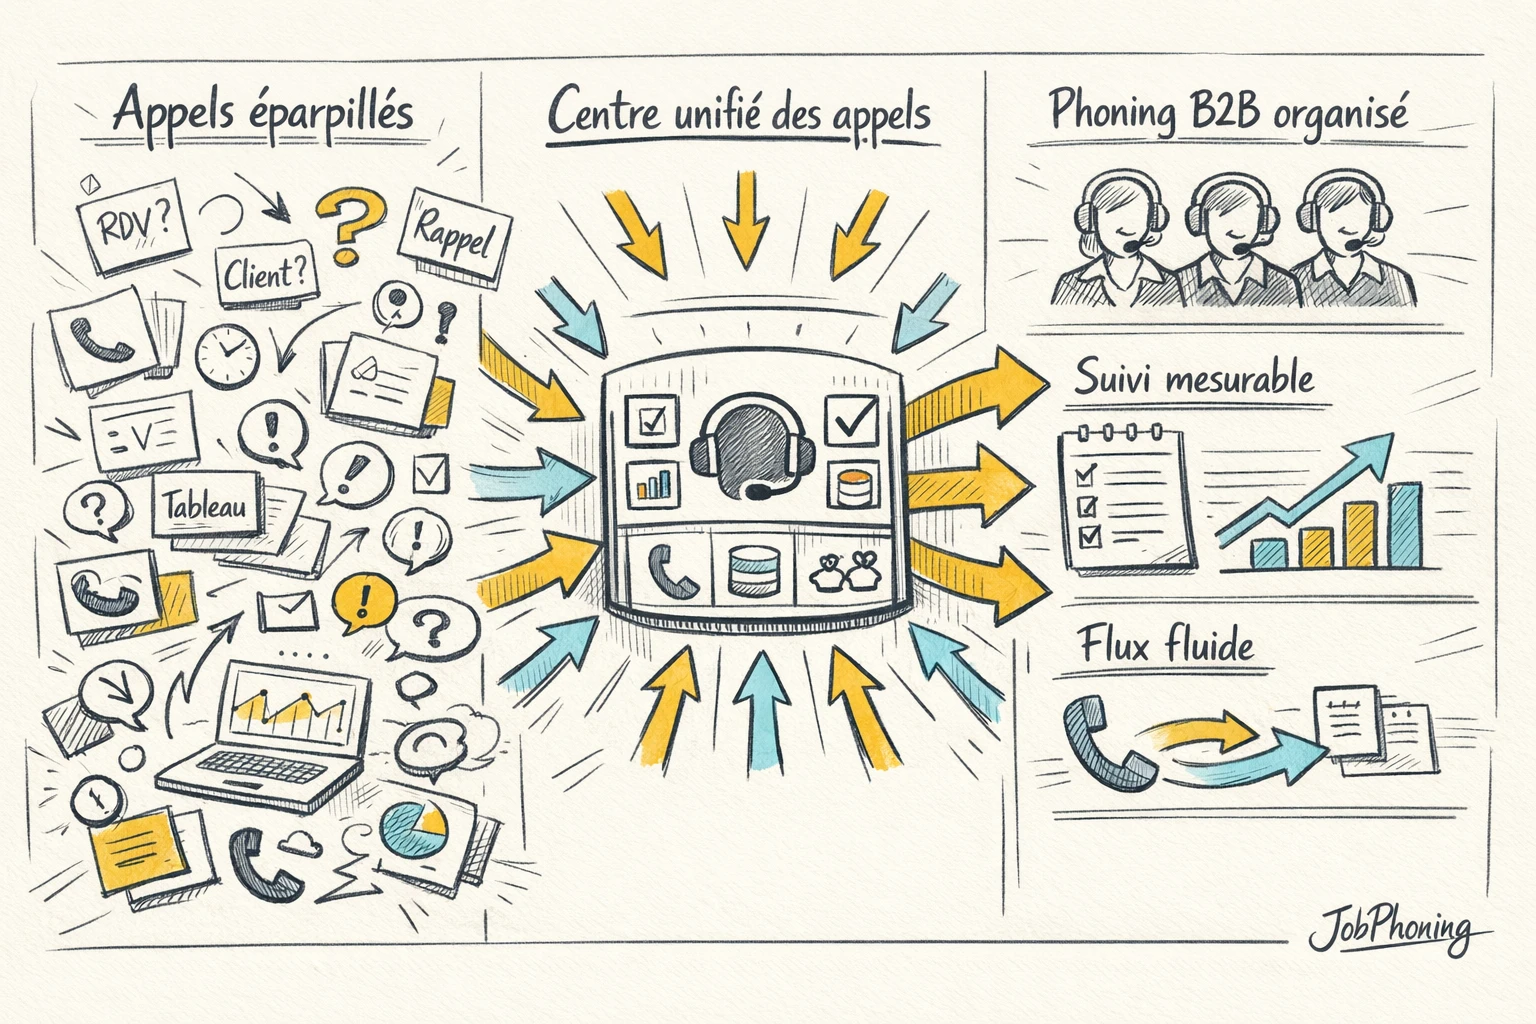 Appels éparpillés
RDV?
Client?
Rappel
Tableau
Centre unifié des appels
Phoning B2B organisé
Suivi mesurable
Flux fluide
JobPhoning